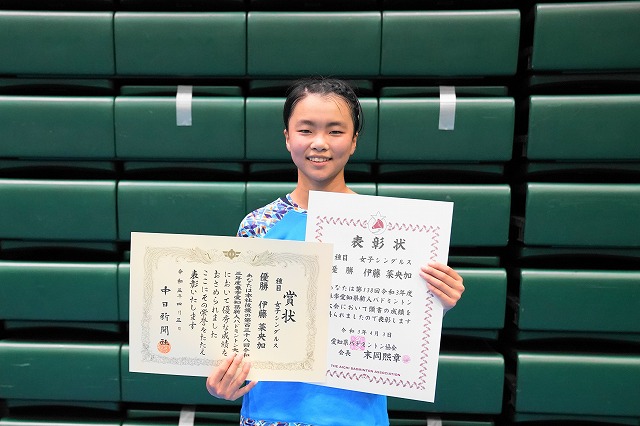 賞状
種目 女子シングルス
優勝 伊藤 菜央加
あなたは本社後援の第百三十八回令和
三年度県春季愛知県新人バドミントン大会
において優秀な成績を
おさめられました
ここにその栄誉をたたえ
表彰いたします
令和三年四月三日
中日新聞社
表彰状
種目 女子シングルス
優勝 伊藤 菜央加
あなたは第138回令和3年度
春季愛知県新人バドミントン
大会において頭書の成績を
得られましたので表彰します
令和3年4月3日
愛知県バドミントン協会
会長 末岡熙章
THE AICHI BADMINTON ASSOCIATION